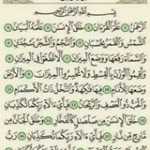 بِسْمِ اللَّهِ الرَّحْمَٰنِ الرَّحِيمِ
الرَّحْمَٰنُ عَلَّمَ الْقُرْآنَ خَلَقَ الْإِنسَانَ
عَلَّمَهُ الْبَيَانَ الشَّمْسُ وَالْقَمَرُ بِحُسْبَانٍ وَالنَّجْمُ وَالشَّجَرُ يَسْجُدَانِ
وَالسَّمَاءَ رَفَعَهَا وَوَضَعَ الْمِيزَانَ أَلَّا تَطْغَوْا فِي الْمِيزَانِ
وَأَقِيمُوا الْوَزْنَ بِالْقِسْطِ وَلَا تُخْسِرُوا الْمِيزَانَ وَالْأَرْضَ
وَضَعَهَا لِلْأَنَامِ فِيهَا فَاكِهَةٌ وَالنَّخْلُ ذَاتُ الْأَكْمَامِ
وَالْحَبُّ ذُو الْعَصْفِ وَالرَّيْحَانُ فَبِأَيِّ آلَاءِ رَبِّكُمَا تُكَذِّبَانِ
خَلَقَ الْإِنسَانَ مِن صَلْصَالٍ كَالْفَخَّارِ وَخَلَقَ الْجَانَّ مِن
مَّارِجٍ مِّن نَّارٍ فَبِأَيِّ آلَاءِ رَبِّكُمَا تُكَذِّبَانِ رَبُّ